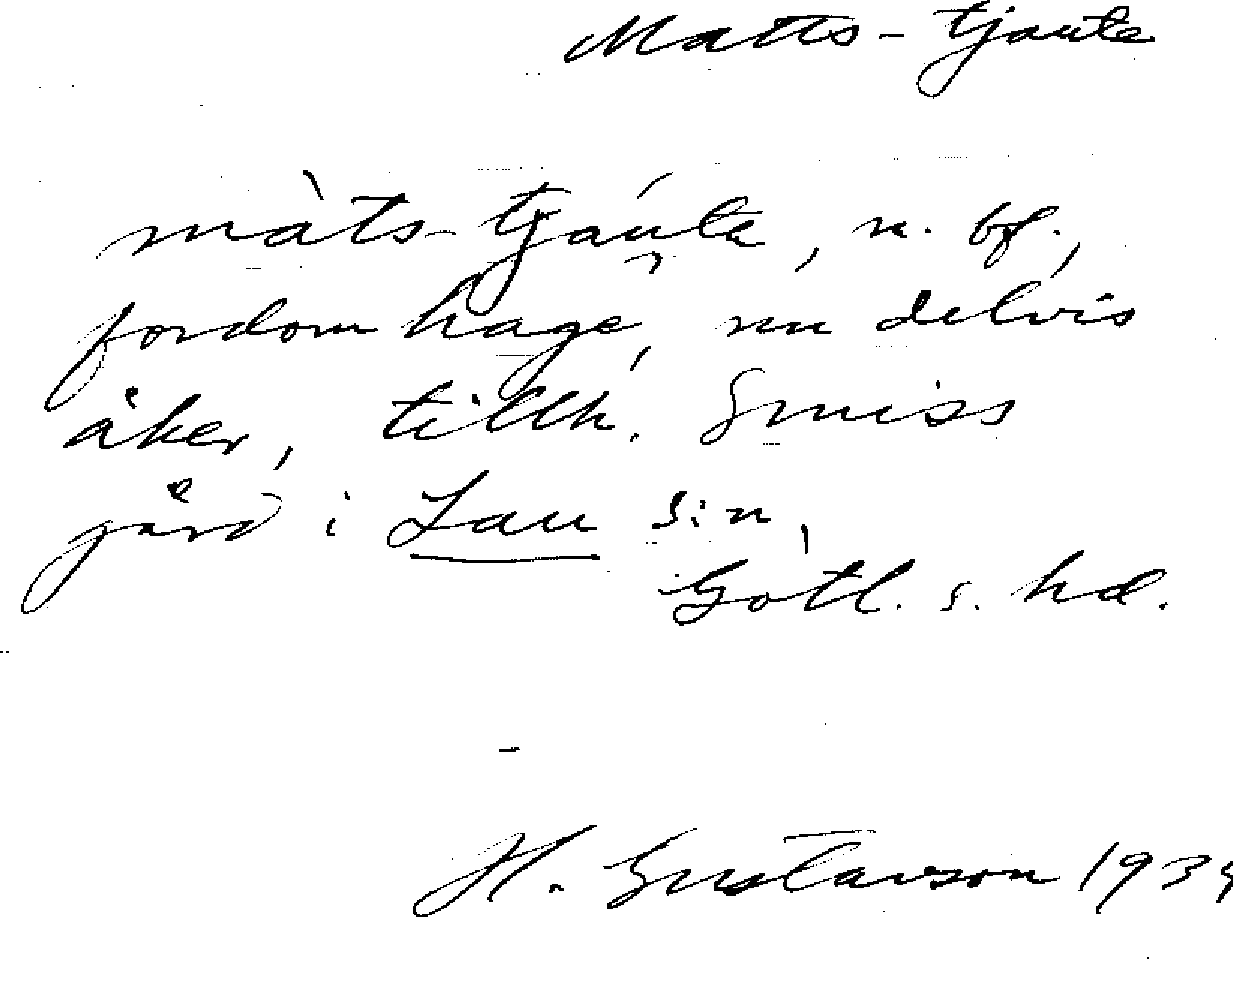 Matts-tjaute
màts-tjáuta, n. bf.,
fordom hage, nu delvis
åker, tillh. Smiss
gård i Lau s:n,
Gotl. s. hd.
H. Gustavson 1934